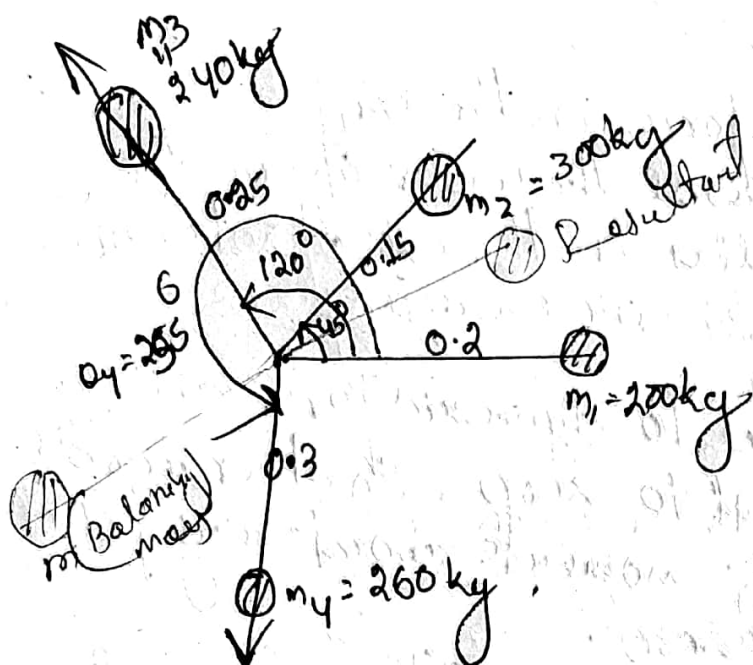 m3
"
240kg
m2 = 300kg
Resultant
0.25
120°
0.15
45°
0.2
m1 = 200kg
θ4 = 255
0.3
m Balancing
mass
m4 = 260 kg.